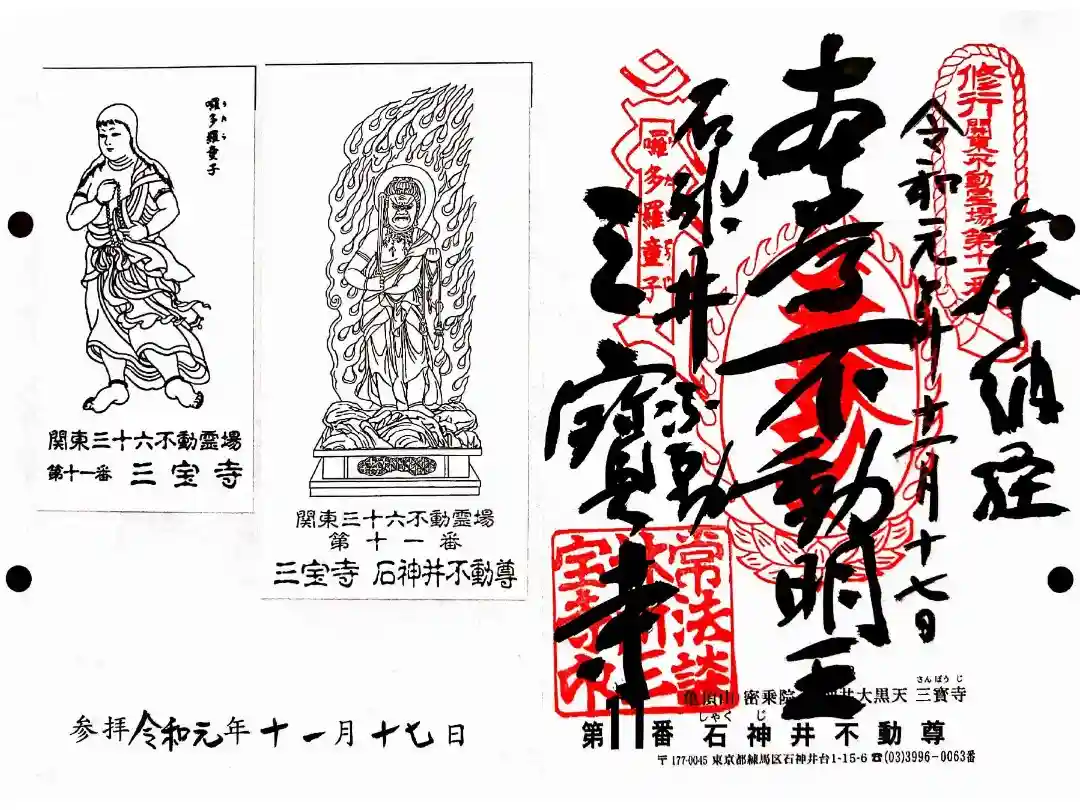 囉多羅童子
関東三十六不動霊場
第十一番 三宝寺
関東三十六不動霊場
第十一番
三宝寺 石神井不動尊
参拝 令和元年十一月十七日
修行
関東不動霊場第十一番
奉納経
令和元年十一月十七日
本尊不動明王
囉多羅童子
石神井不動
三寳寺
常法談
林所三
宝寺印
さんぽうじ
亀頂山 密乗院 井大黒天 三寳寺
しゃくじ
第11番 石神井不動尊
〒177-0045 東京都練馬区石神井台1-15-6 ☎(03)3996-0063番